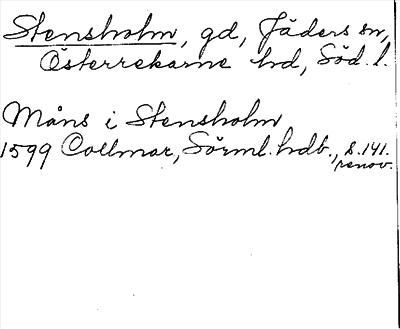 Stensholm, gd, Jäders sn,
Österrekarne hd, Söd. l.
Måns i Stensholm
1599 Collmar, Sörml. hdb., s. 141.
renov.